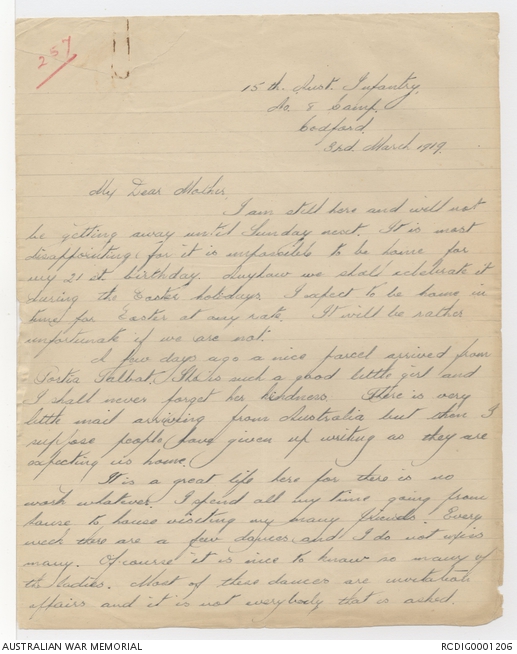 257
15th. Aust. Infantry.
No. 8 Camp.
Codford.
3rd. March 1919.
My Dear Mother,
I am still here and will not
be getting away until Sunday next. It is most
disappointing: for it is impossible to be home for
my 21st. birthday. Anyhow we shall celebrate it
during the Easter holidays. I expect to be home in
time for Easter at any rate. It will be rather
unfortunate if we are not.
A few days ago a nice parcel arrived from
Portia Talbat. She is such a good little girl and
I shall never forget her kindness. There is very
little mail arriving from Australia but then I
suppose people have given up writing as they are
expecting us home.
It is a great life here for there is no
work whatever. I spend all my time going from
house to house visiting my many friends. Every
week there are a few dances, and I do not miss
many. Of course it is nice to know so many of
the ladies. Most of these dances are invitation
affairs and it is not everybody that is asked.
AUSTRALIAN WAR MEMORIAL
RCDIG0001206